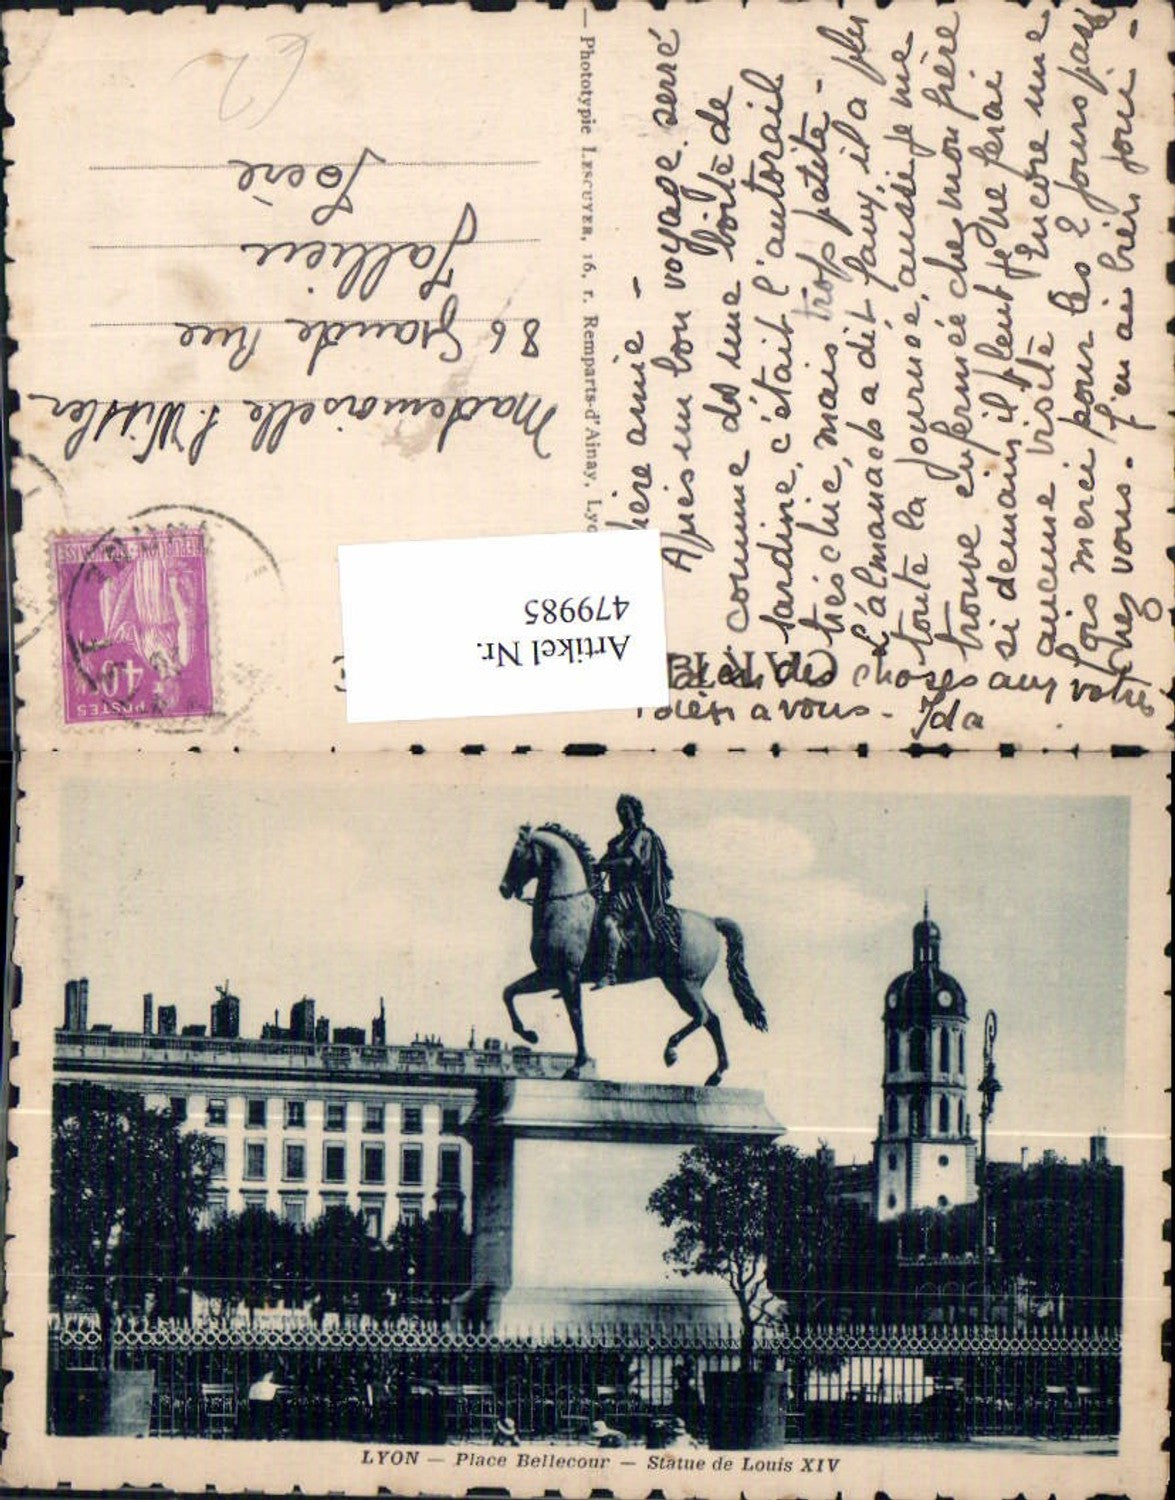 Chère amie -
Après un bon voyage serré
comme ds une boîte de
sardine, c'était l'autorail
très chic, mais trop petite -
L'almanach a dit faux, il a plu
toute la journée, aussi je me
trouve enfermée chez mon frère
si demain il pleut je ne ferai
aucune visite Encore une
fois merci pour les 2 jours passé
chez vous - J'en ai bien joui -
Bien des choses aux votres
Bises a vous - Ida
CARTE
Phototypie LESCUYER, 16, r. Remparts-d'Ainay, Lyo
Mademoiselle J. Wisler
86 Grande Rue
Jallieu
Isère
POSTES
40c
REPUBLIQUE FRANÇAISE
Artikel Nr.
479985
LYON — Place Bellecour — Statue de Louis XIV